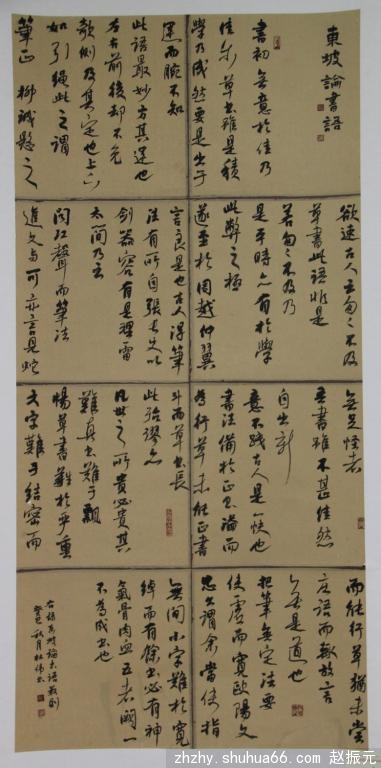 東坡論書語
書初無意於佳乃
佳尔草書雖是積
學乃成然要是出于
欲速古人云匆匆不及
草書此語非是
若匆匆不及乃
是平時亦有於學
此弊之極
遂至於周越仲翼
無足怪者
吾書雖不甚佳然
自出新
意不踐古人是一快也
書法備於正書溢而
為行草未能正書
而能行草猶未嘗
庄語而輒放言
無是道也
把筆無定法要
使虛而寬歐陽文
忠公謂余當使指
運而腕不知
此語最妙方其運也
左右前後却不免
欹側及其定也上下
如引繩此之謂
筆正柳誠懸之
言良是也古人得筆
法有所自張長史以
劍器容有是理雷
太簡乃云
聞江聲而筆法
進文與可亦言見蛇
斗而草書長
此殆謬矣
凡世之所貴必貴其
難真書難于飄
揚草書難於嚴重
大字難于結密而
無間小字難於寬
綽而有餘書必有神
氣骨肉血五者闕一
不為成書也
右錄東坡論書語數則
癸巳秋月書
zhzhy.shuhua66.com 赵振元